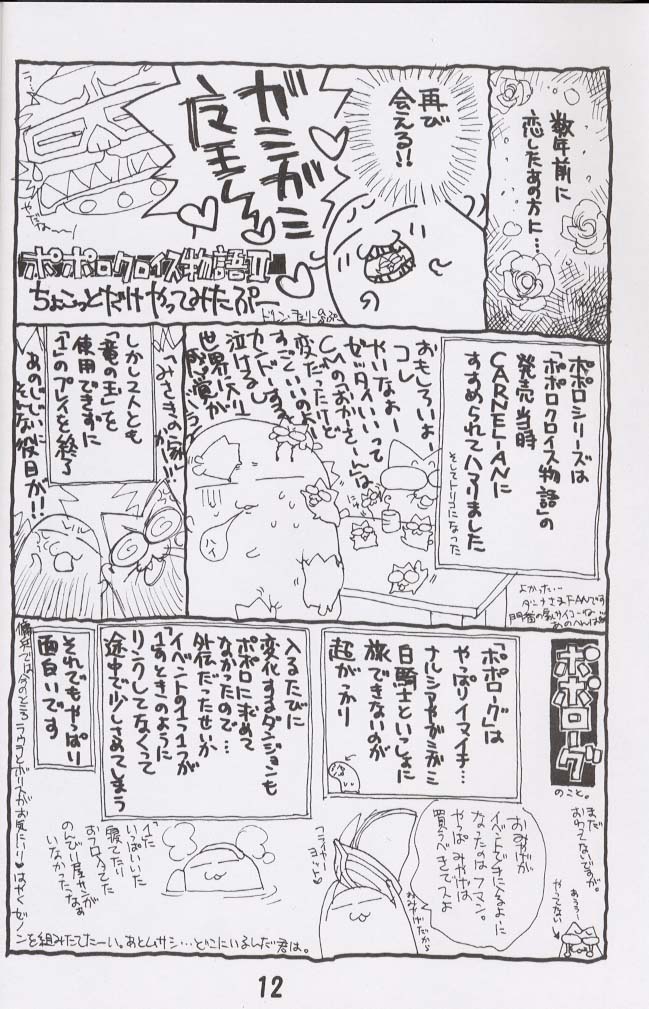 数年前に
恋したあの方に…
再び
会える!!
ガミガミ
魔王さん
ラ…
やだな〜〜っ
の
ポポロクロイス物語II
ちょこっとだけやってみたぷー
ポポロシリーズは
「ポポロクロイス物語」の
発売当時
CARNELIANに
すすめられてハマりました
そしてトリコになった
おもしろいよー
コレ
やいなよー
ゼッタイいいって
CMの「おかーさーん」は
変だったけど
すごくいいのよー
カンドーするよー
泣けるし
世界に入り
感覚が
ハイ
「みさきの家」
かは!!!
しかし2人とも
「竜の玉」を
使用できずに
「1」のプレイを終了
あのじじいに
そんな役目が!!
よかった…
ポポローグ
のこと。
まだ
おわってないですが。
あうう…
やってない
「ポポローグ」は
やっぱりイマイチ…
ナルシャやガミガミ
白騎士といっしょに
旅できないのが
超がっかり
入るたびに
変化するダンジョンも
ポポロに求めて
なかったので…
外伝だったせいか
イベントの1つ1つが
「1」のときのように
リンクしてなくって
途中で少しさめてしまう
それでもやっぱり
面白いです
おみやげが
イベントでキに入るように
なったのはフマン。
やっぱみやげは
買うべきでスよ
おみやげだから
フライヤー
ヨット
「1」に
いっぱいいた
寝てたり
おフロ入ってた
のんびり屋サンが
いなかったなぁ
傭兵では今のところラウラとボリスがお気にいり♥はやくゼノンを組みたてたーい。あとムサシ…どこにいるんだ君は。
12